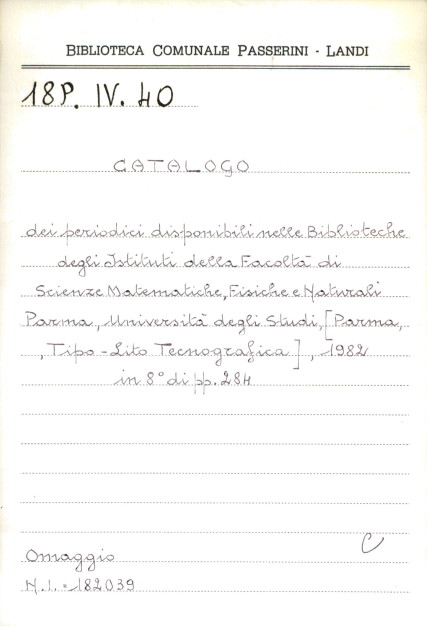 BIBLIOTECA COMUNALE PASSERINI - LANDI
18P. IV. 40
CATALOGO
dei periodici disponibili nelle Biblioteche
degli Istituti della Facoltà di
Scienze Matematiche, Fisiche e Naturali
Parma, Università degli Studi, [Parma,
, Tipo-Lito Tecnografica], 1982
in 8° di pp. 284
C
Omaggio
N.I. = 182039